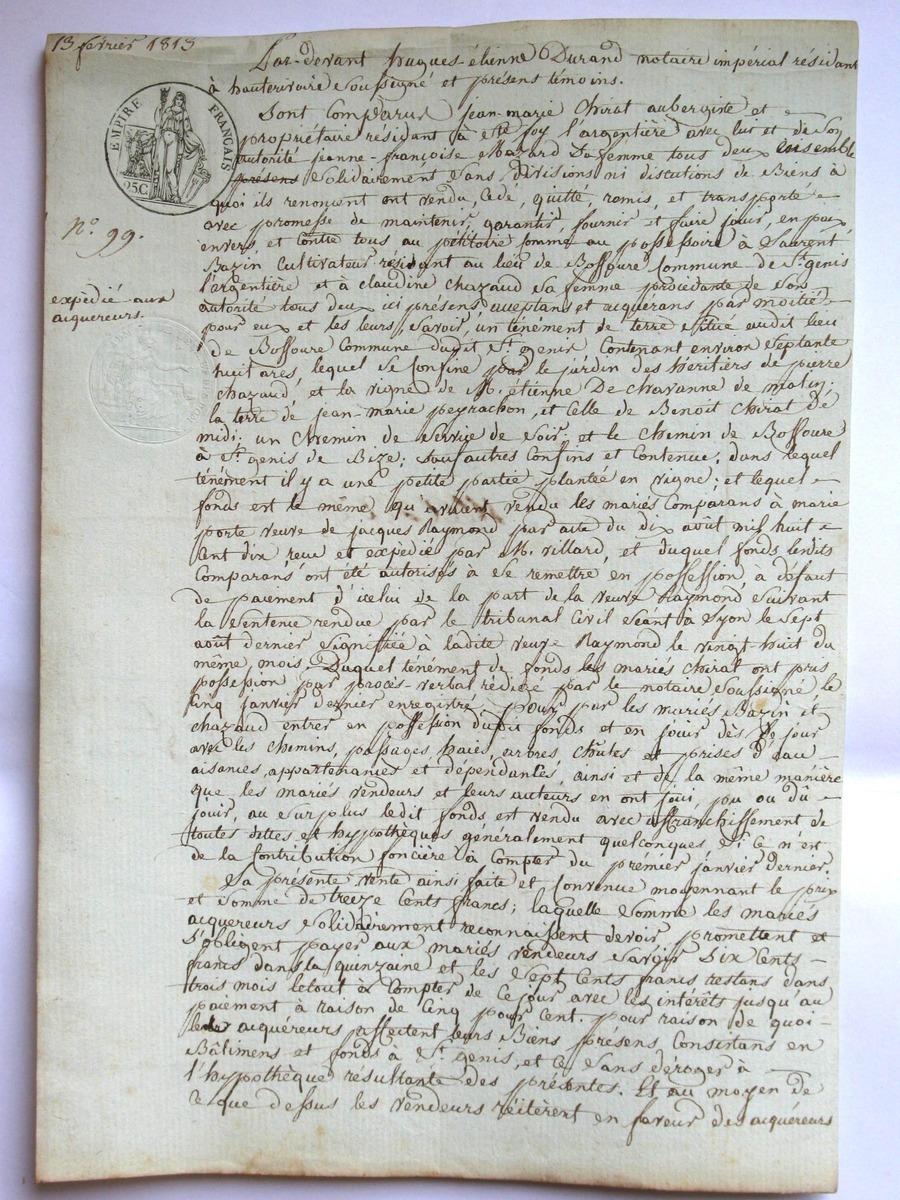 13 février 1813
Par-devant hugues-étienne Durand notaire impérial résidant
à hauterivoire soussigné et présens témoins.
Sont comparus jean-marie Chirat aubergiste et
propriétaire résidant à Ste foy l'argentière avec lui et de son
autorité jeanne-françoise Mazard sa femme tous deux ensemble
présens solidairement sans divisions ni discutions de Biens à
quoi ils renoncent ont vendu, cédé, quitté, remis, et transporté
avec promesse de maintenir, garantir, fournir et faire jouir, en paix
envers et contre tous au pétitoire comme au possessoire à Laurent
Bazin Cultivateur résidant au lieu de Bossoure Commune de St genis
l'argentière et à claudine Chazaud sa femme procédante de son
autorité tous deux ici présens acceptans et acquérans par moitié
pour eux et les leurs, savoir, un ténement de terre situé audit lieu
de Bossoure Commune dudit St genis Contenant environ septante
huit ares, lequel se confine par le jardin des héritiers de pierre
Chazaud, et la vigne de M. étienne De chavanne de matin;
la terre de jean-marie peyrachon, et celle de Benoit Chirat de
midi; un chemin de service de soir, et le chemin de Bossoure
à St genis de Bize; sauf autres Confins et Contenue; dans lequel
ténement il y a une petite partie plantée en vigne; et lequel
fonds est le même qu'avaient vendu les mariés Comparans à marie
porte veuve de jacques Raymond par acte du dix août mil huit
cent dix reçu et expédié par M. Villard, et duquel fonds lesdits
Comparans ont été autorisés à se remettre en possession à défaut
de paiement d'icelui de la part de la veuve Raymond suivant
la sentence rendue par le tribunal Civil séant à Lyon le sept
août dernier signifiée à ladite veuve Raymond le vingt huit du
même mois. Duquel ténement de fonds les mariés chirat ont pris
possession par procès-verbal rédigé par le notaire soussigné le
cinq janvier dernier enregistré, pour par les mariés Bazin et
chazaud entrer en possession dudit fonds et en jouir dès ce jour
avec les chemins, passages haies, arbres, chûtes et prises d'eau
aisances, appartenances et dépendances, ainsi et de la même manière
que les mariés vendeurs et leurs auteurs en ont joui, pu ou dû
jouir, au surplus ledit fonds est vendu avec affranchissement de
toutes dettes et hypothèques généralement quelconques si ce n'est
de la Contribution foncière à Compter du premier janvier dernier.
La présente vente ainsi faite et Convenue moyennant le prix
et somme de treize Cents francs; laquelle somme les mariés
acquéreurs solidairement reconnaissent devoir, promettent et
s'obligent payer aux mariés vendeurs savoir six cents
francs dans la quinzaine et les sept Cents francs restans dans
trois mois le tout à Compter de ce jour avec les intérêts jusqu'au
paiement à raison de Cinq pour Cent. pour raison de quoi
les acquéreurs affectent leurs Biens présens Consistans en
Bâtimens et fonds à St genis, et ce sans déroger à
l'hypothèque résultante des présentes. Et au moyen de
ce que dessus les vendeurs réitèrent en faveur des acquéreurs
EMPIRE FRANÇAIS
25C
No. 99.
expédié aux
acquéreurs.